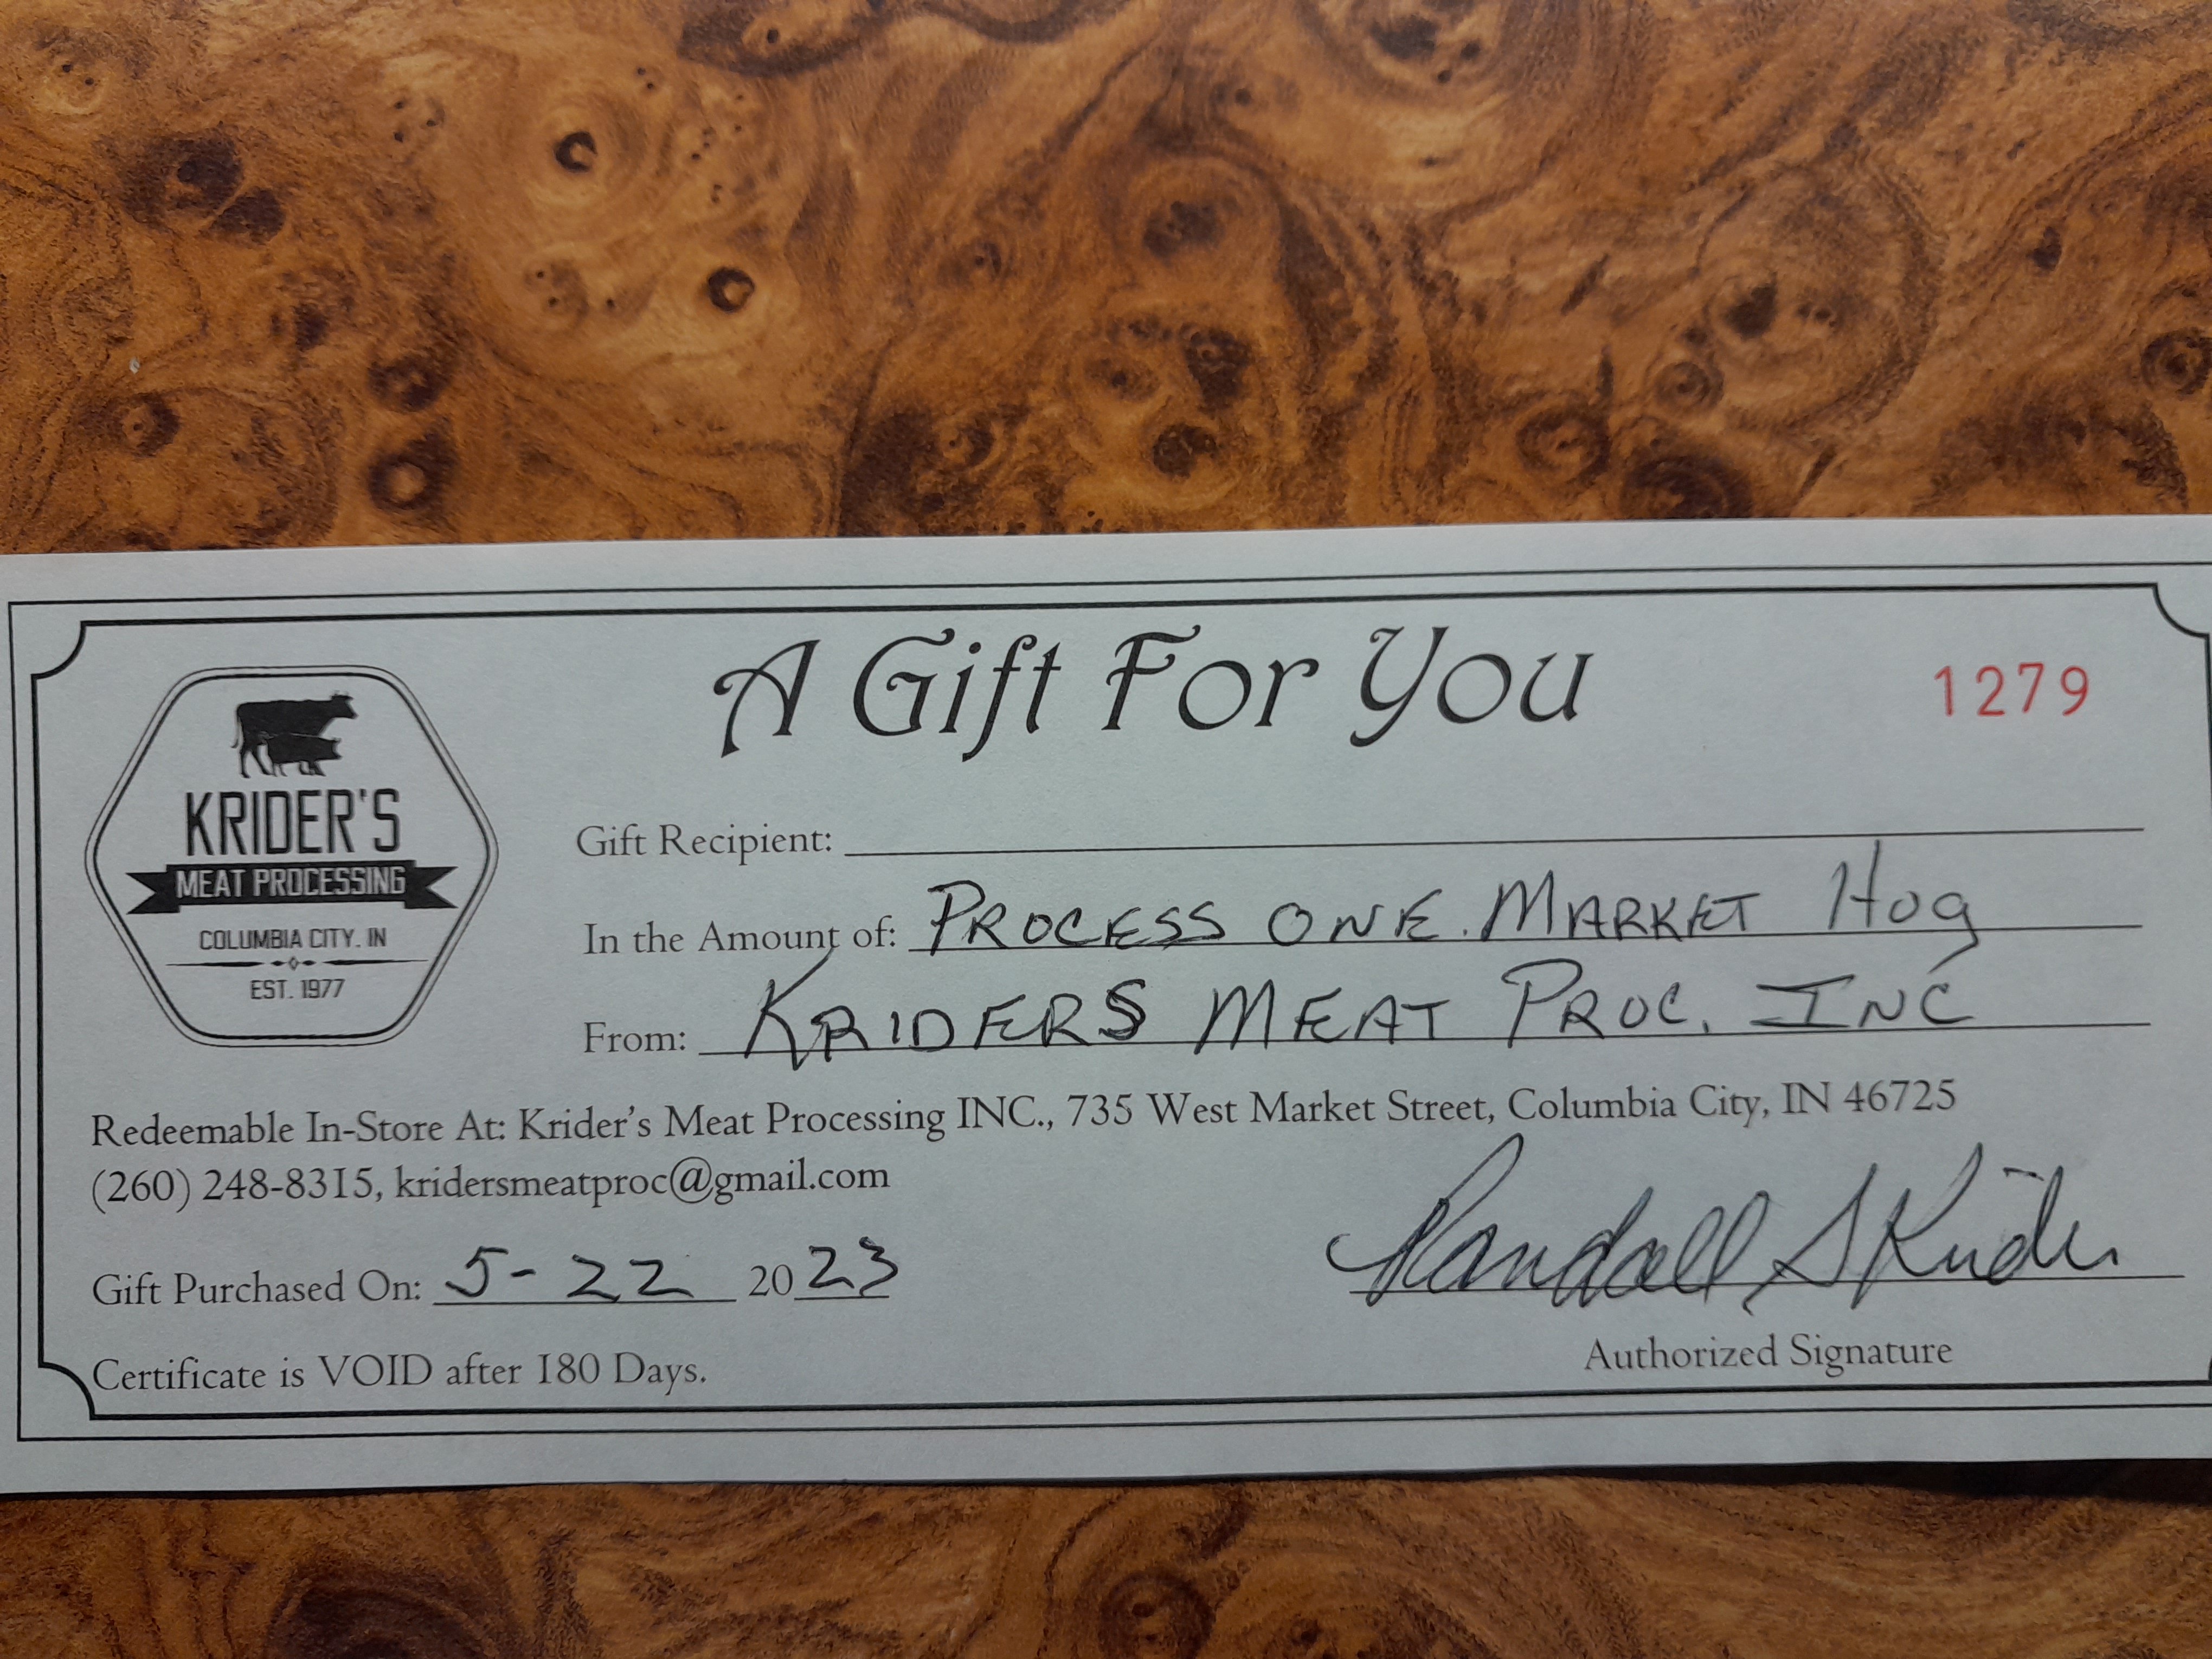 A Gift For You
1279
KRIDER'S
MEAT PROCESSING
COLUMBIA CITY, IN
EST. 1977
Gift Recipient:
In the Amount of: PROCESS ONE MARKET Hog
From: KRIDERS MEAT PROC. INC
Redeemable In-Store At: Krider's Meat Processing INC., 735 West Market Street, Columbia City, IN 46725
(260) 248-8315, kridersmeatproc@gmail.com
Gift Purchased On: 5-22 2023
Randall S Krider
Authorized Signature
Certificate is VOID after 180 Days.